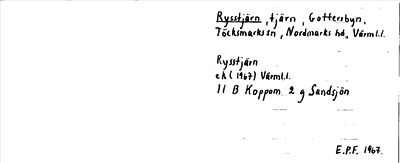 Rysstjärn, tjärn, Gottersbyn,
Töcksmarks sn, Nordmarks hd, Värml.l.
Rysstjärn
ek (1967) Värml.l.
11 B Koppom 2 g Sandsjön
E.P.F. 1967.